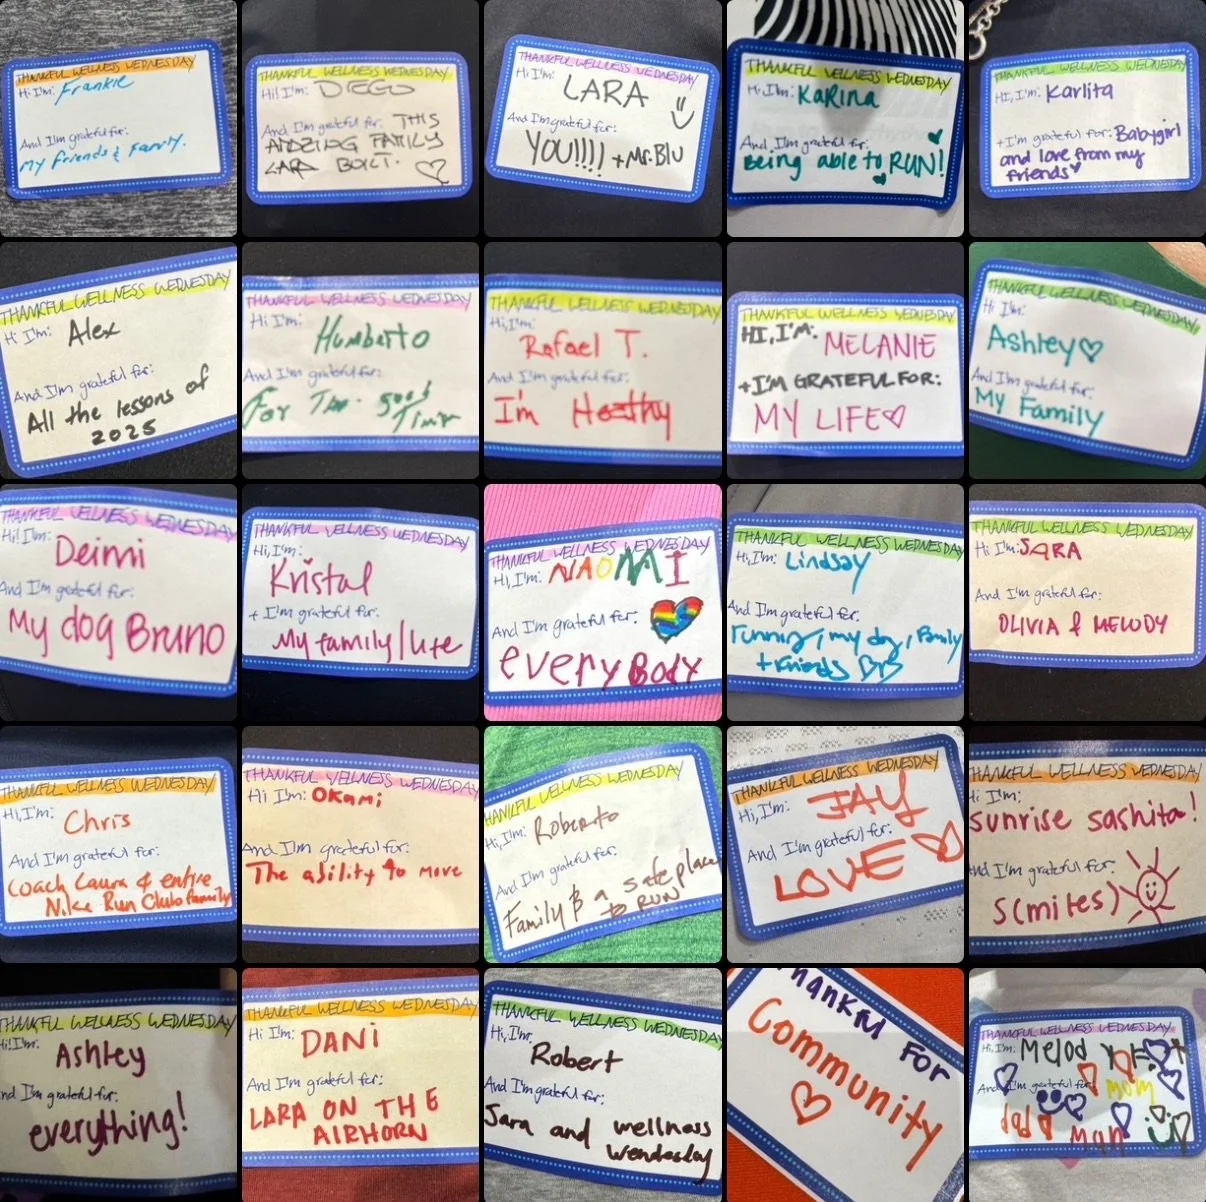 THANKFUL WELLNESS WEDNESDAY
Hi I'm: Frankie
And I'm grateful for:
My friends & Family.
THANKFUL WELLNESS WEDNESDAY
Hi! I'm: DIEGO
And I'm grateful for: THIS
AMAZING FAMILY
LARA BUILT.
THANKFUL WELLNESS WEDNESDAY
Hi I'm:
LARA
And I'm grateful for:
YOU!!!! + Mr. Blu
THANKFUL WELLNESS WEDNESDAY
Hi, I'm: KaRina
And I'm grateful for:
Being able to RUN!
THANKFUL WELLNESS WEDNESDAY
HI, I'm: Karlita
+ I'm grateful for: Babygirl
and love from my
friends
THANKFUL WELLNESS WEDNESDAY
Hi I'm: Alex
And I'm grateful for:
All the lessons of
2025
THANKFUL WELLNESS WEDNESDAY
Hi I'm:
Humberto
And I'm grateful for:
For
THANKFUL WELLNESS WEDNESDAY
Hi, I'm:
Rafael T.
And I'm grateful for:
I'm Healthy
THANKFUL WELLNESS WEDNESDAY
HI, I'M: MELANIE
+ I'M GRATEFUL FOR:
MY LIFE
THANKFUL WELLNESS WEDNESDAY
Hi I'm:
Ashley
And I'm grateful for:
My Family
THANKFUL WELLNESS WEDNESDAY
Hi! I'm:
Deimi
And I'm grateful for:
My dog Bruno
THANKFUL WELLNESS WEDNESDAY
Hi, I'm:
Kristal
+ I'm grateful for:
My family/life
THANKFUL WELLNESS WEDNESDAY
Hi, I'm: NAOMI
And I'm grateful for:
everyBody
THANKFUL WELLNESS WEDNESDAY
Hi, I'm: Lindsay
And I'm grateful for:
running, my dog, family
+ friends
THANKFUL WELLNESS WEDNESDAY
Hi I'm: SARA
And I'm grateful for:
OLIVIA & MELODY
THANKFUL WELLNESS WEDNESDAY
Hi, I'm:
Chris
And I'm grateful for:
Coach Laura & entire
Nike Run Club family
THANKFUL WELLNESS WEDNESDAY
Hi I'm: Okami
And I'm grateful for:
The ability to move
THANKFUL WELLNESS WEDNESDAY
Hi, I'm: Roberto
And I'm grateful for:
Family & a safe place
to RUN
THANKFUL WELLNESS WEDNESDAY
Hi, I'm: JAY
And I'm grateful for:
LOVE
THANKFUL WELLNESS WEDNESDAY
Hi I'm:
sunrise sashita!
And I'm grateful for:
S(miles)
THANKFUL WELLNESS WEDNESDAY
Hi! I'm:
Ashley
And I'm grateful for:
everything!
THANKFUL WELLNESS WEDNESDAY
Hi I'm:
DANi
And I'm grateful for:
LARA ON THE
AIRHORN
THANKFUL WELLNESS WEDNESDAY
Hi, I'm:
Robert
And I'm grateful for:
Sara and wellness
Wendesday
Thankful FOR
Community
THANKFUL WELLNESS WEDNESDAY
Hi, I'm: Melody
And I'm grateful for: MOM